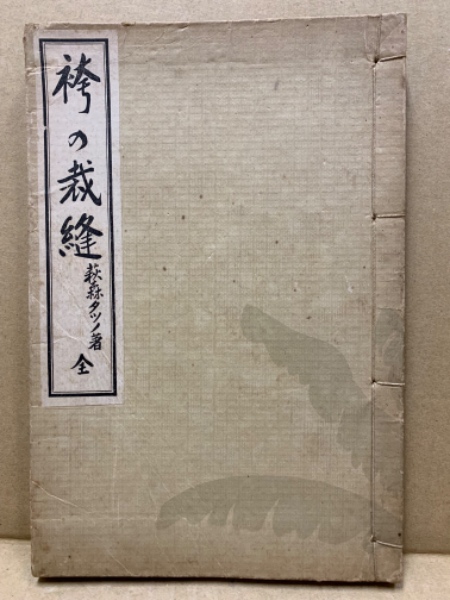 袴の裁縫
萩森タツノ著
全